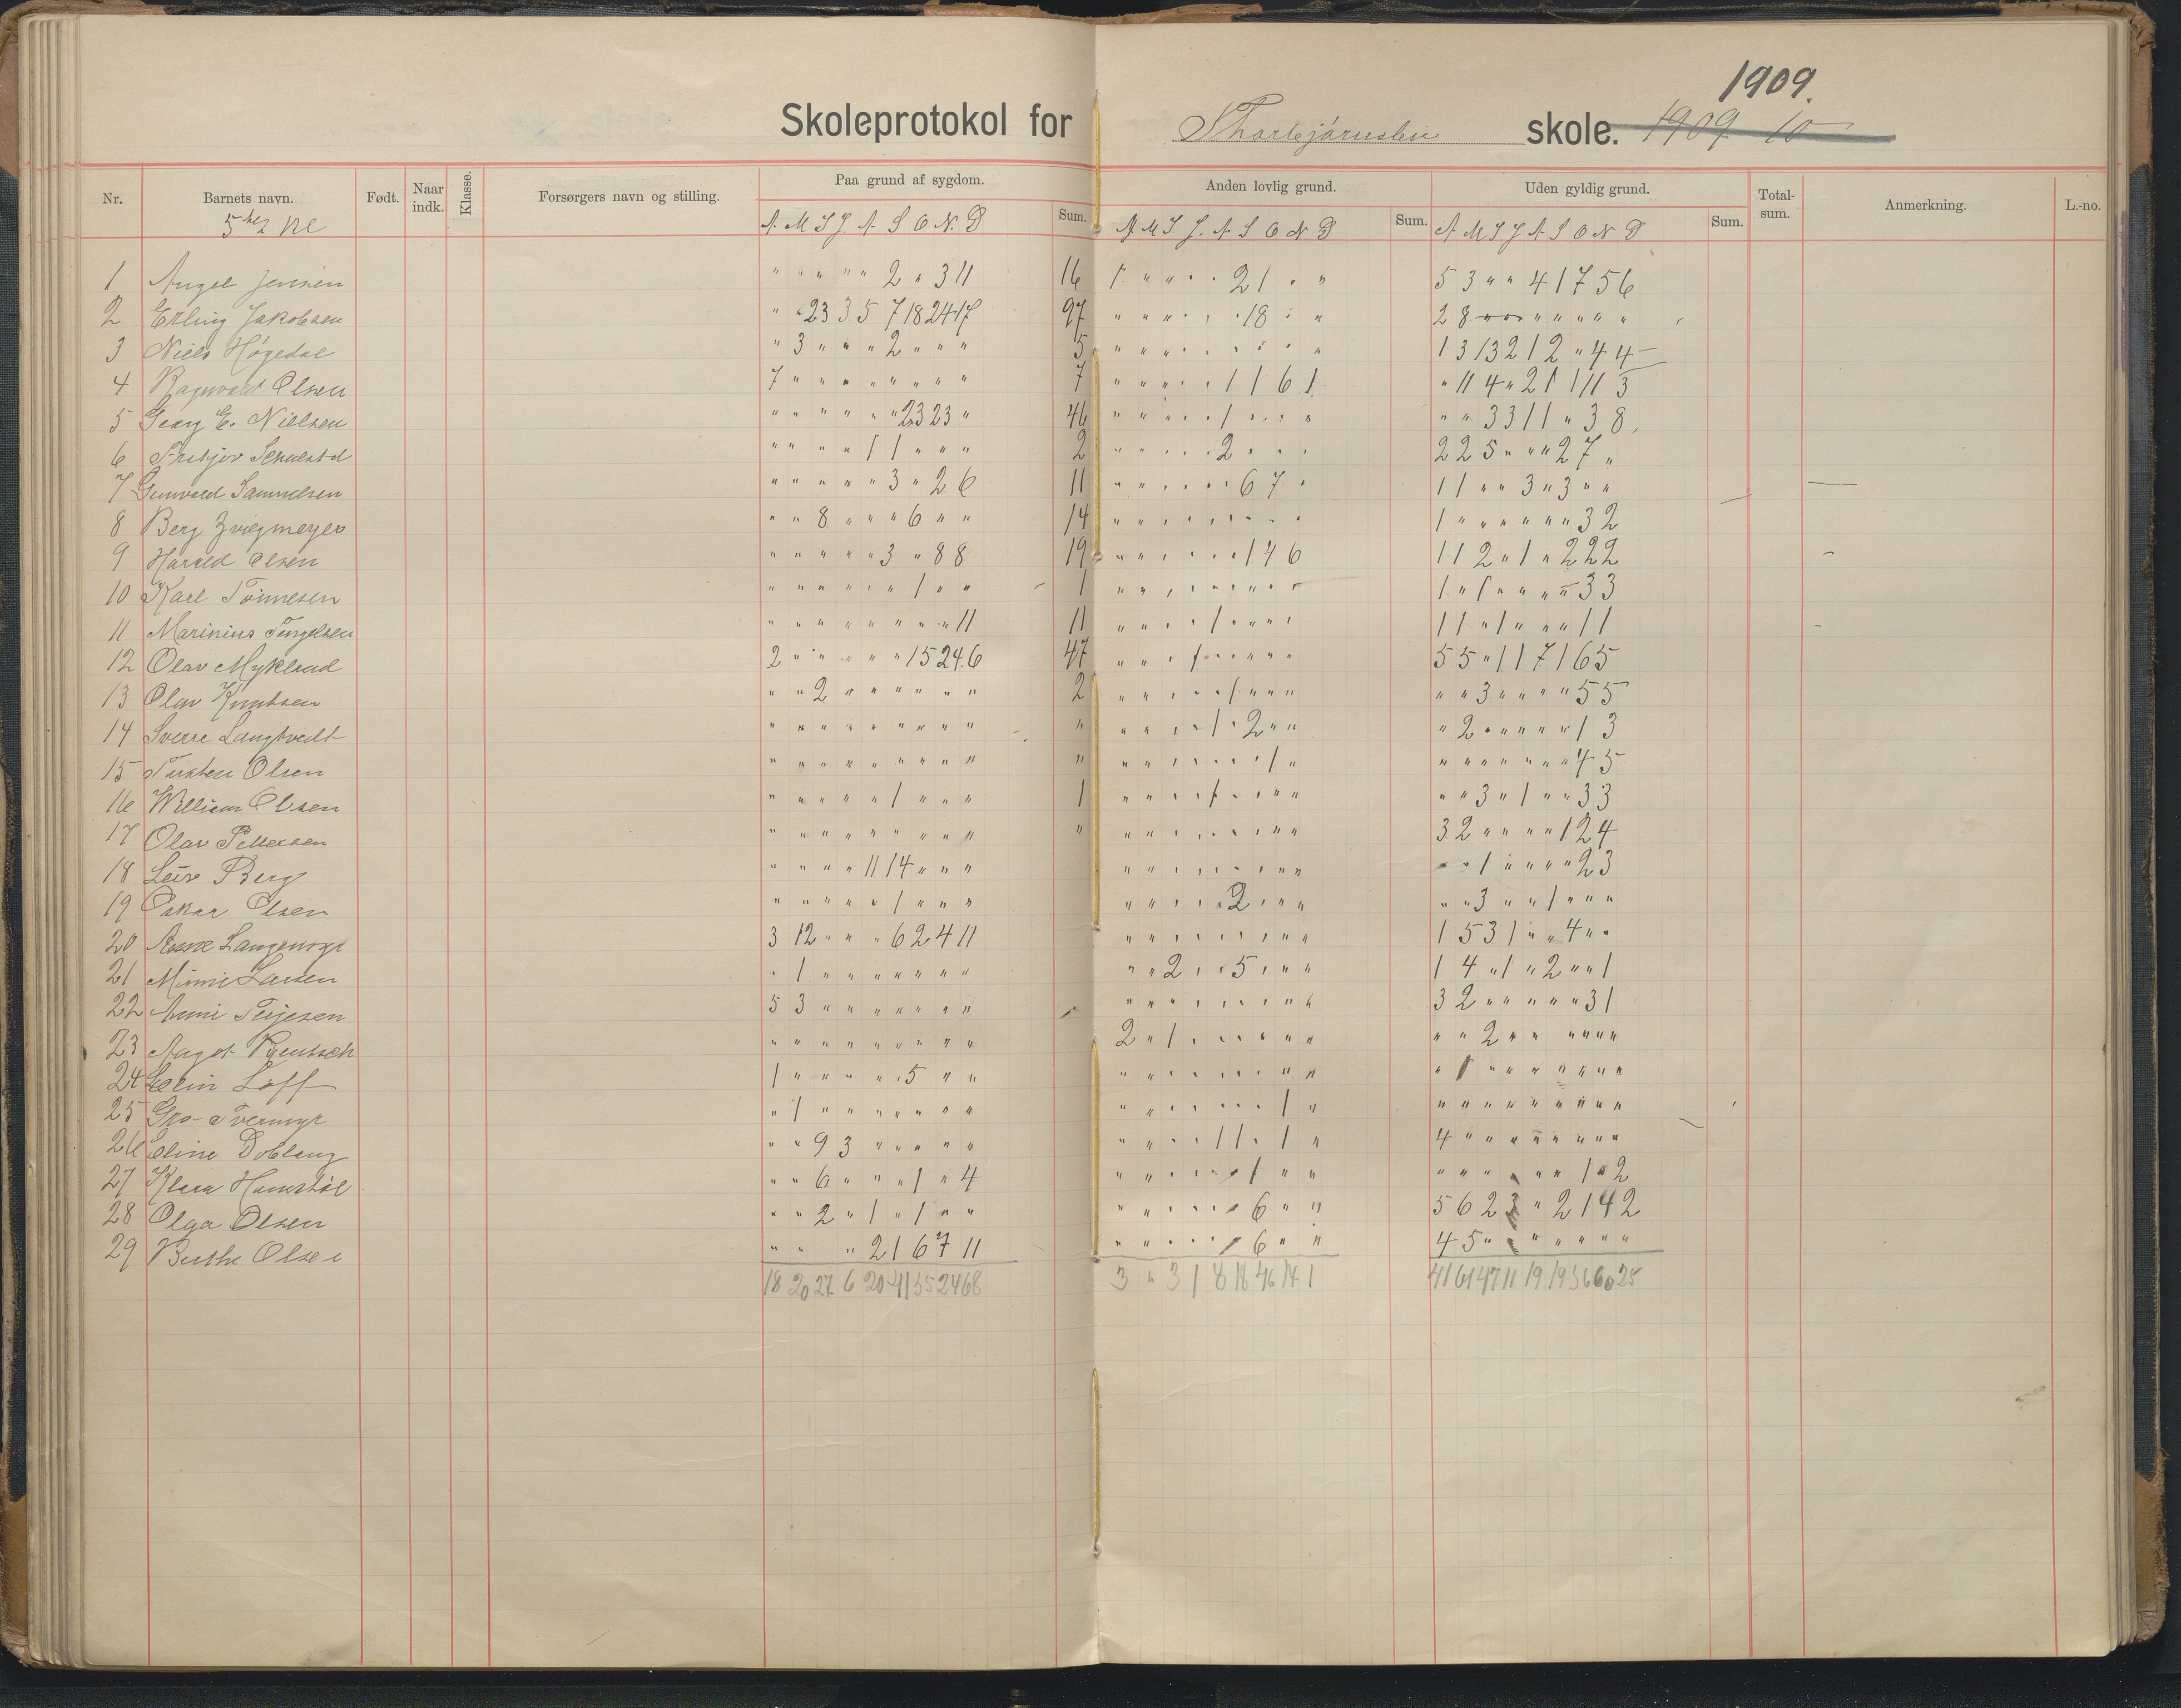 1909.
Skoleprotokol for Thorbjørnsbu skole. 1909 10
Nr. Barnets navn. Født. Naar indk. Klasse. Forsørgers navn og stilling. Paa grund af sygdom. Sum. Anden lovlig grund. Sum. Uden gyldig grund. Sum. Total-sum. Anmerkning. L.-no.
A M J J A S O N D A M J J A S O N D A M J J A S O N D
1 Angel Jensen " " " " " 2 " 3 11 16 1 " " " " 2 1 " " 5 3 " " 4 1 7 5 6
2 Erling Jakobsen " " 23 3 5 7 18 24 17 97 " " " " " " 18 " " 2 8 " " " " " " "
3 Niels Høgedal " 3 " " " 2 " " " 5 " " " " " " " " " 1 3 13 2 1 2 " 4 4
4 Ragnvald Olsen 7 " " " " " " " " 7 " " " " " 1 1 6 1 " 11 4 " 2 1 1 11 3
5 Georg E. Nielsen " " " " " " 23 23 " 46 " " " " " 1 " " " " " 3 3 1 1 " 3 8
6 " " " " 1 1 " " " 2 " " " " " 2 " " " 2 2 5 " " " 2 7 "
7 Gunvald Samuelsen " " " " " 3 " 2 6 11 " " " " " " 6 7 " 1 1 " " 3 " 3 " "
8 Berg " " 8 " " " 6 " " 14 " " " " " " " " " 1 " " " " " " 3 2
9 Harald Olsen " " " " " 3 " 8 8 19 " " " " " " 1 4 6 1 1 2 " 1 " 2 2 2
10 Karl Tønnesen " " " " " " 1 " " 1 " " " " " " " " " 1 " 1 " " " " 3 3
11 Marinius Terjelsen " " " " " " " " 11 11 " " " " 1 " " " " 1 1 " 1 " " " 1 1
12 Olav Myklund 2 " " " " " 15 24 6 47 " " " 1 " " " " " 5 5 " 1 1 7 1 6 5
13 Olav Knutsen " " 2 " " " " " " 2 " " " " " 1 " " " " " 3 " " " " 5 5
14 Sverre Langtvedt " " " " " " " " " " " " " " 1 " 2 " " " 2 " " " " " 1 3
15 Torsten Olsen " " " " " " " " " " " " " " " " " 1 " " " " " " " " 4 5
16 William Olsen " " " " " 1 " " " 1 " " " " 1 " " " " " " 3 " 1 " " 3 3
17 Olav Pettersen " " " " " " " " " " " " " " " " " " " 3 2 " " " " 1 2 4
18 Leiv Berg " " " " 11 14 " " " " " " " " " " " " " " 1 " " " " 2 3
19 Oskar Olsen " " " " " 1 " " " " " " " " 2 " " " " " 3 " " 1 " " "
20 Aasse Langemyr 3 12 " " " 6 2 4 11 " " " " " " " " " 1 5 3 1 " " 4 " "
21 Minni Larsen " 1 " " " " " " " " " 2 " " 5 " " " 1 4 " 1 " 2 " " 1
22 Anni Terjesen 5 3 " " " " " " " " " " " " " " " " 3 2 " " " " " 3 1
23 Aagot Rentsch " " " " " " " " " 2 " 1 " " " " " " " " 2 " " " " " "
24 Elin Loff 1 " " " " " 5 " " " " " " " " " " " " 1 " " " " " " "
25 Gro Tvermyr " 1 " " " " " " " " " " " " " " 1 " " " " " " " " " "
26 Eline Dobloug " " 9 3 " " " " " " " " " 1 1 " 1 " 4 " " " " " " " "
27 Klara Hamstøl " " 6 " " " 1 " 4 " " " " " " 1 " " " " " " " " 1 " 2
28 Olga Olsen " " 2 " 1 " 1 " " " " " " " " 6 " " 5 6 2 3 " 2 1 4 2
29 Berthe Olsen " " " " 2 1 6 7 11 " " " " " 1 6 " " 4 5 " " " " " " "
18 20 27 6 20 41 55 24 68 3 " 3 1 8 16 46 14 1 41 61 47 11 19 19 36 60 25